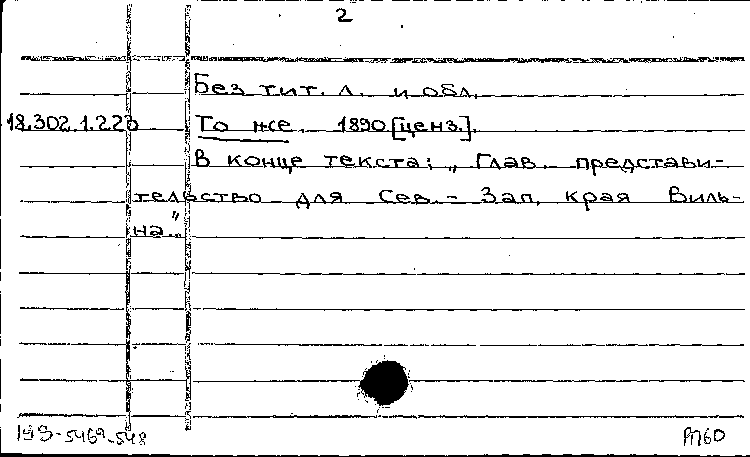 2
Без тит. л. и обл.
18.302.1.223 То же. 1890 [ценз.].
В конце текста: „Глав. представи-
тельство для Сев.-Зап. края Виль-
на.“
199-5469-548 РП60